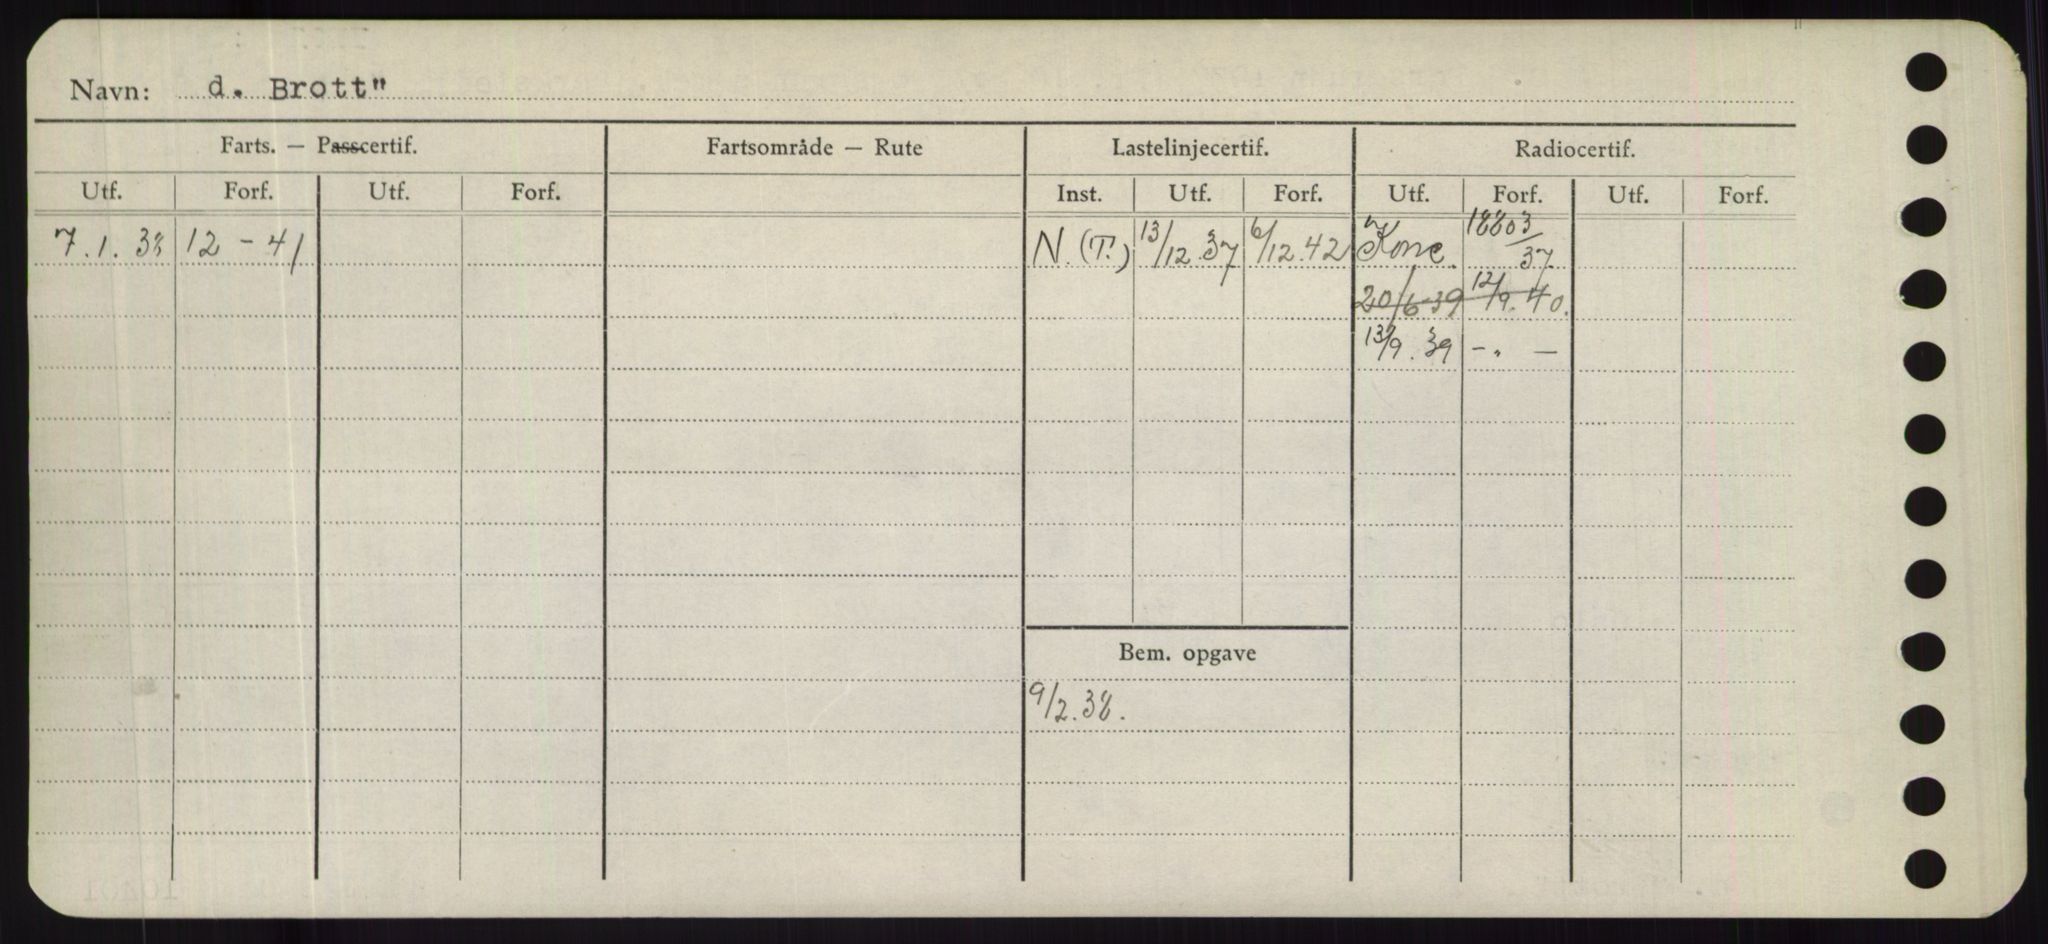 Navn: d. Brott"
Farts. — Passcertif. Fartsområde — Rute Lastelinjecertif. Radiocertif.
Utf. Forf. Utf. Forf. Inst. Utf. Forf. Utf. Forf. Utf. Forf.
7.1.38 12 - 41 N. (T.) 13/12.37 6/12.42 Konc. 18803/37
20/6-39 12/9.40.
13/9.39 -"-
Bem. opgave
9/2.38.